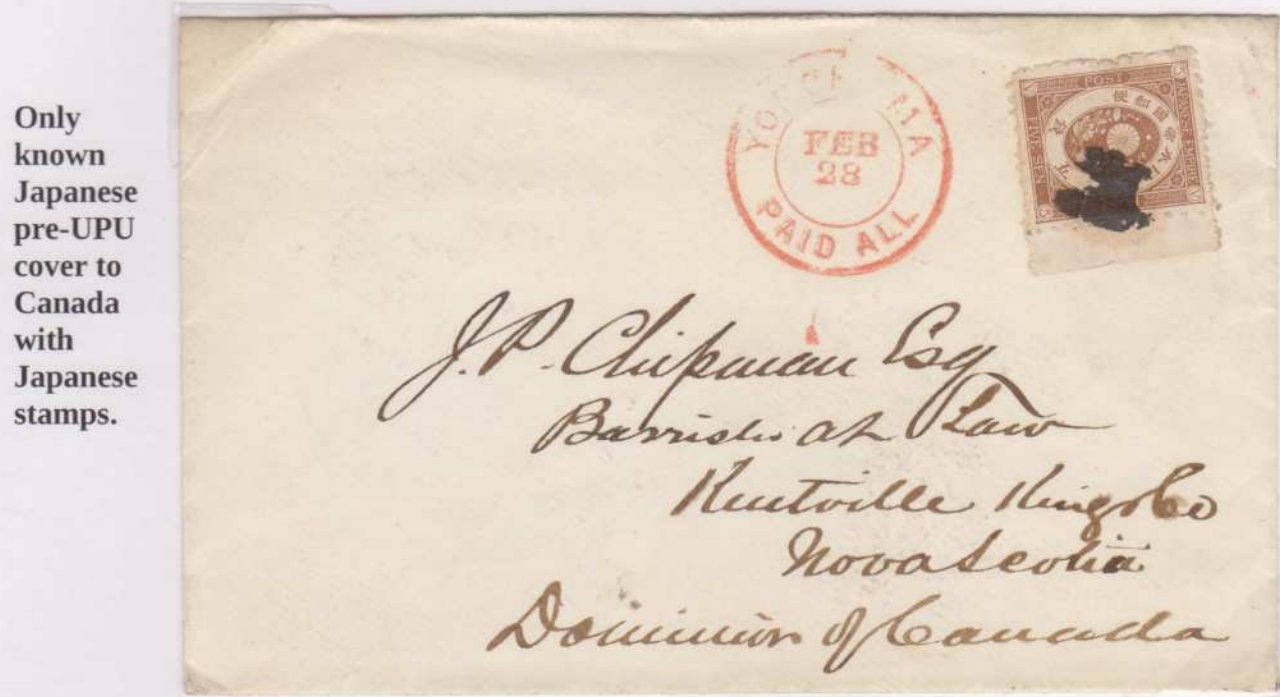 Only
known
Japanese
pre-UPU
cover to
Canada
with
Japanese
stamps.
YO MA
FEB
28
PAID ALL
POST
J. P. Chipman Esq
Barrister at Law
Kentville Kings Co
Nova Scotia
Dominion of Canada